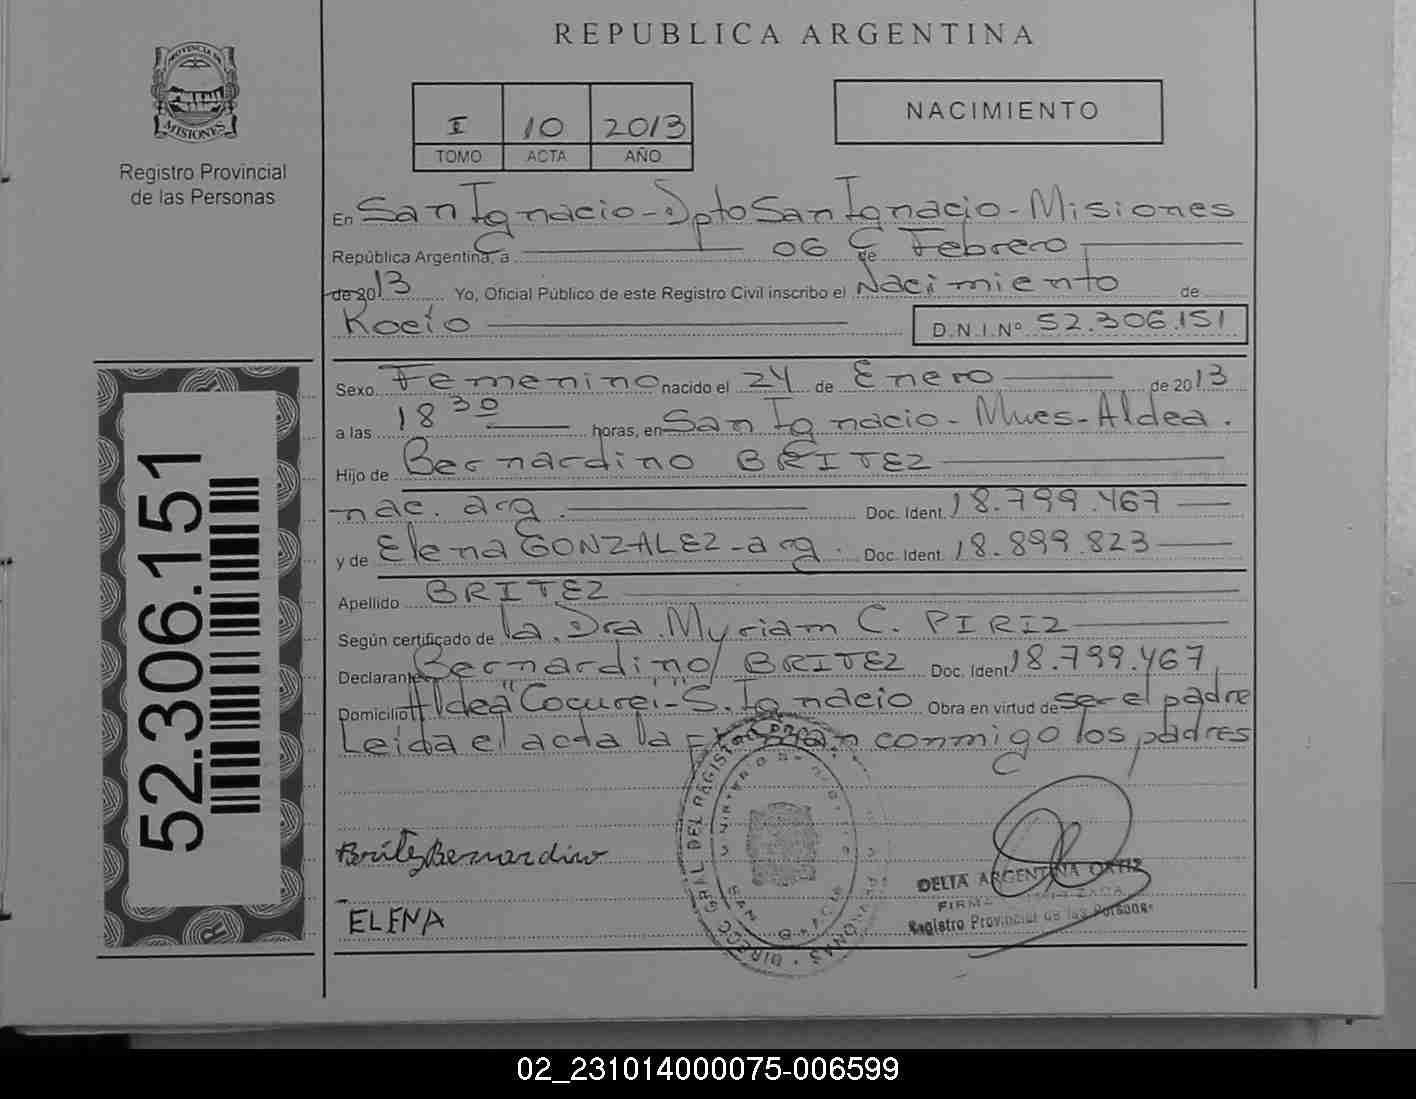 REPUBLICA ARGENTINA
PROVINCIA DE
MISIONES
Registro Provincial
de las Personas
NACIMIENTO
I 10 2013
TOMO ACTA AÑO
En San Ignacio - Dpto San Ignacio - Misiones
República Argentina, a 06 de Febrero
de 2013 Yo, Oficial Público de este Registro Civil inscribo el Nacimiento de
Rocío D.N.I.Nº 52.306.151
Sexo Femenino nacido el 24 de Enero de 2013
a las 18 30 horas, en San Ignacio - Mnes - Aldea.
Hijo de Bernardino BRITEZ
nac. arg. Doc. Ident. 18.799.467
y de Elena GONZALEZ - arg. Doc. Ident. 18.899.823
Apellido BRITEZ
Según certificado de la Dra. Myriam C. PIRIZ
Declarante Bernardino BRITEZ Doc. Ident. 18.799.467
Domicilio Aldea "Cocurei" - S. Ignacio Obra en virtud de ser el padre
Leída el acta la firman conmigo los padres
52.306.151
Britez Bernardino
ELENA
DIRECC GRAL DEL REGISTRO
SAN
DELIA ARGENTINA ORTIZ
Registro Provincial de las Personas
02_231014000075-006599